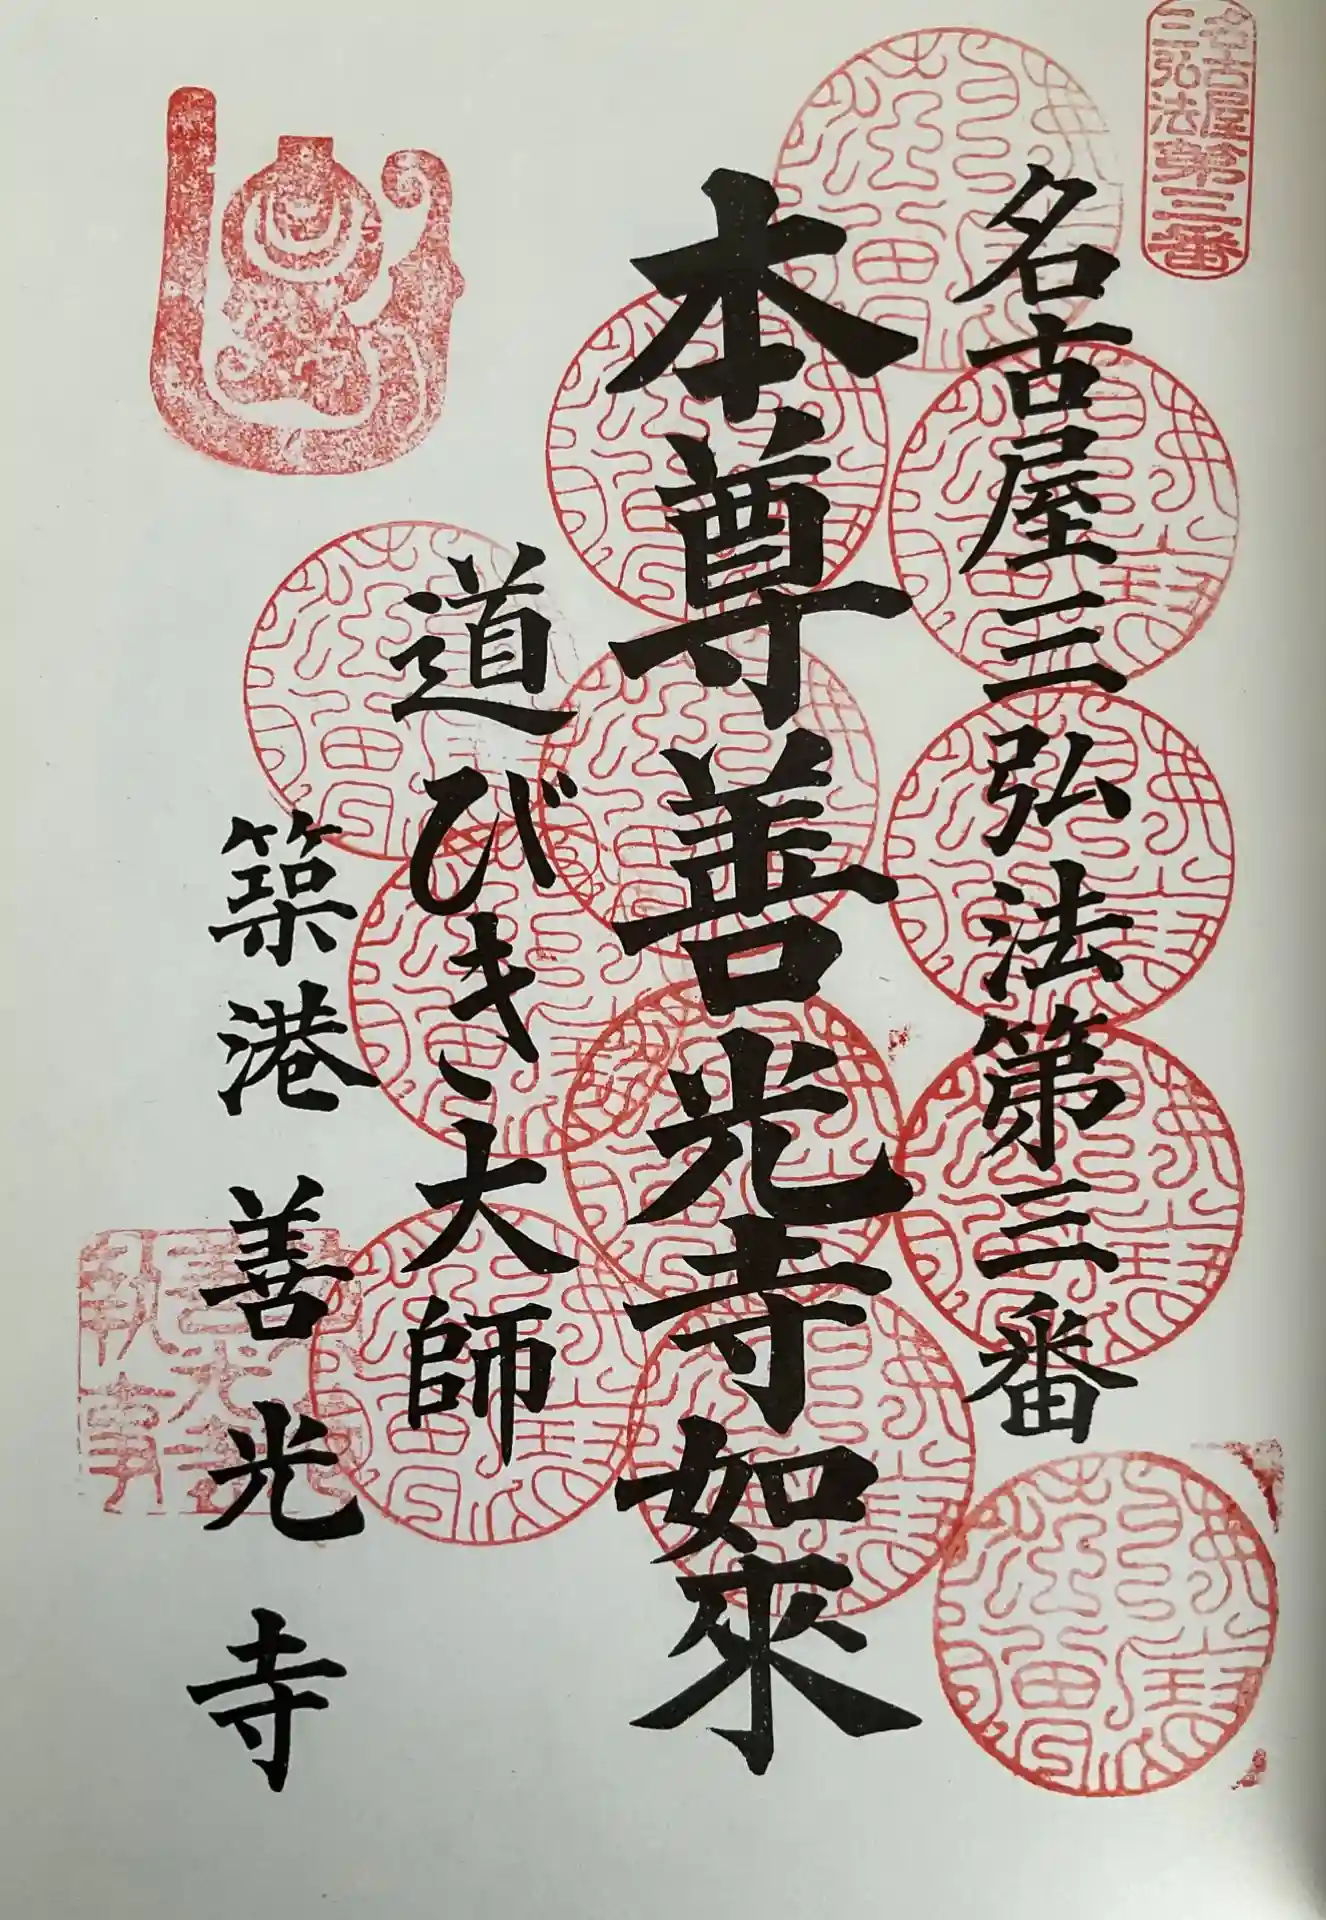 名古屋三弘法第三番
名古屋三弘法第三番
本尊善光寺如來
道びき大師
築港 善光寺